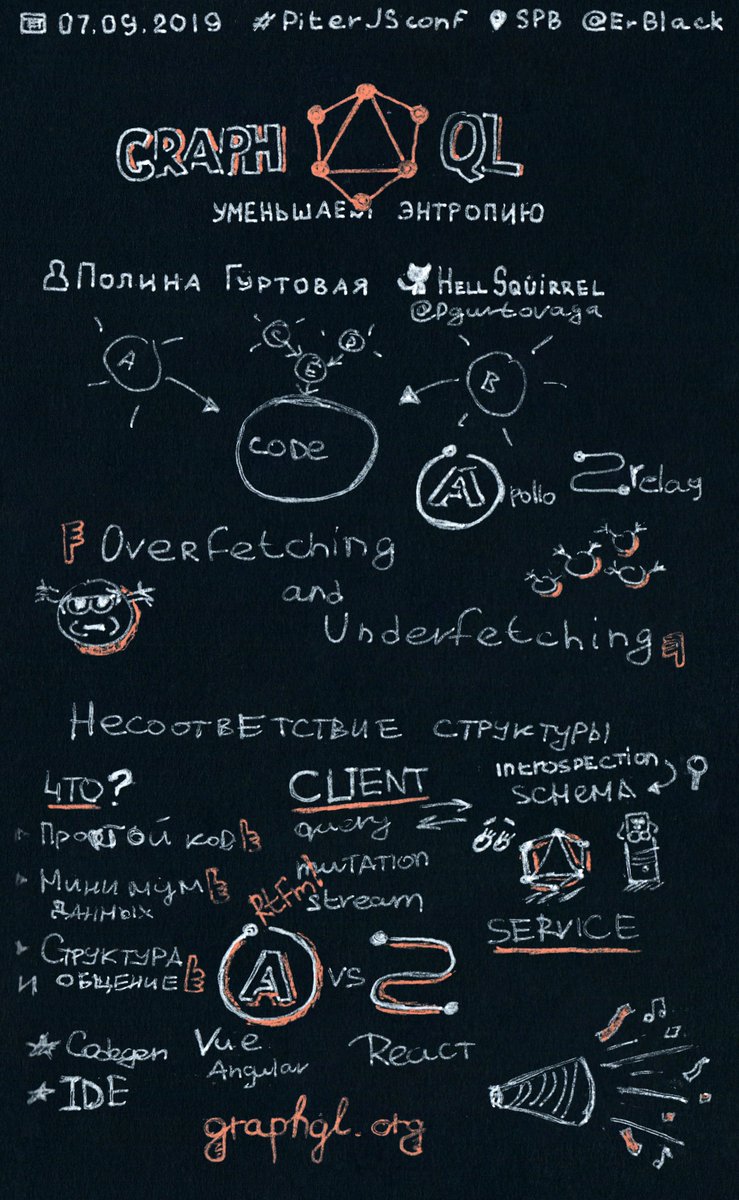 07.09.2019 #PiterJSconf SPB @ErBlack
GRAPH QL
УМЕНЬШАЕМ ЭНТРОПИЮ
ПОЛИНА ГУРТОВАЯ HELL SQUIRREL
@Pgurtovaya
A C D E B
CODE
Apollo relay
Overfetching
and
Underfetching
НЕСООТВЕТСТВИЕ СТРУКТУРЫ
ЧТО?
ПРОСТОЙ КОД
МИНИМУМ
ДАННЫХ
СТРУКТУРА
И ОБЩЕНИЕ
Codegen
IDE
CLIENT
query
MUTATION
stream
RTFM!
INTROSPECTION
SCHEMA
SERVICE
A VS
Vue
Angular
React
graphql.org